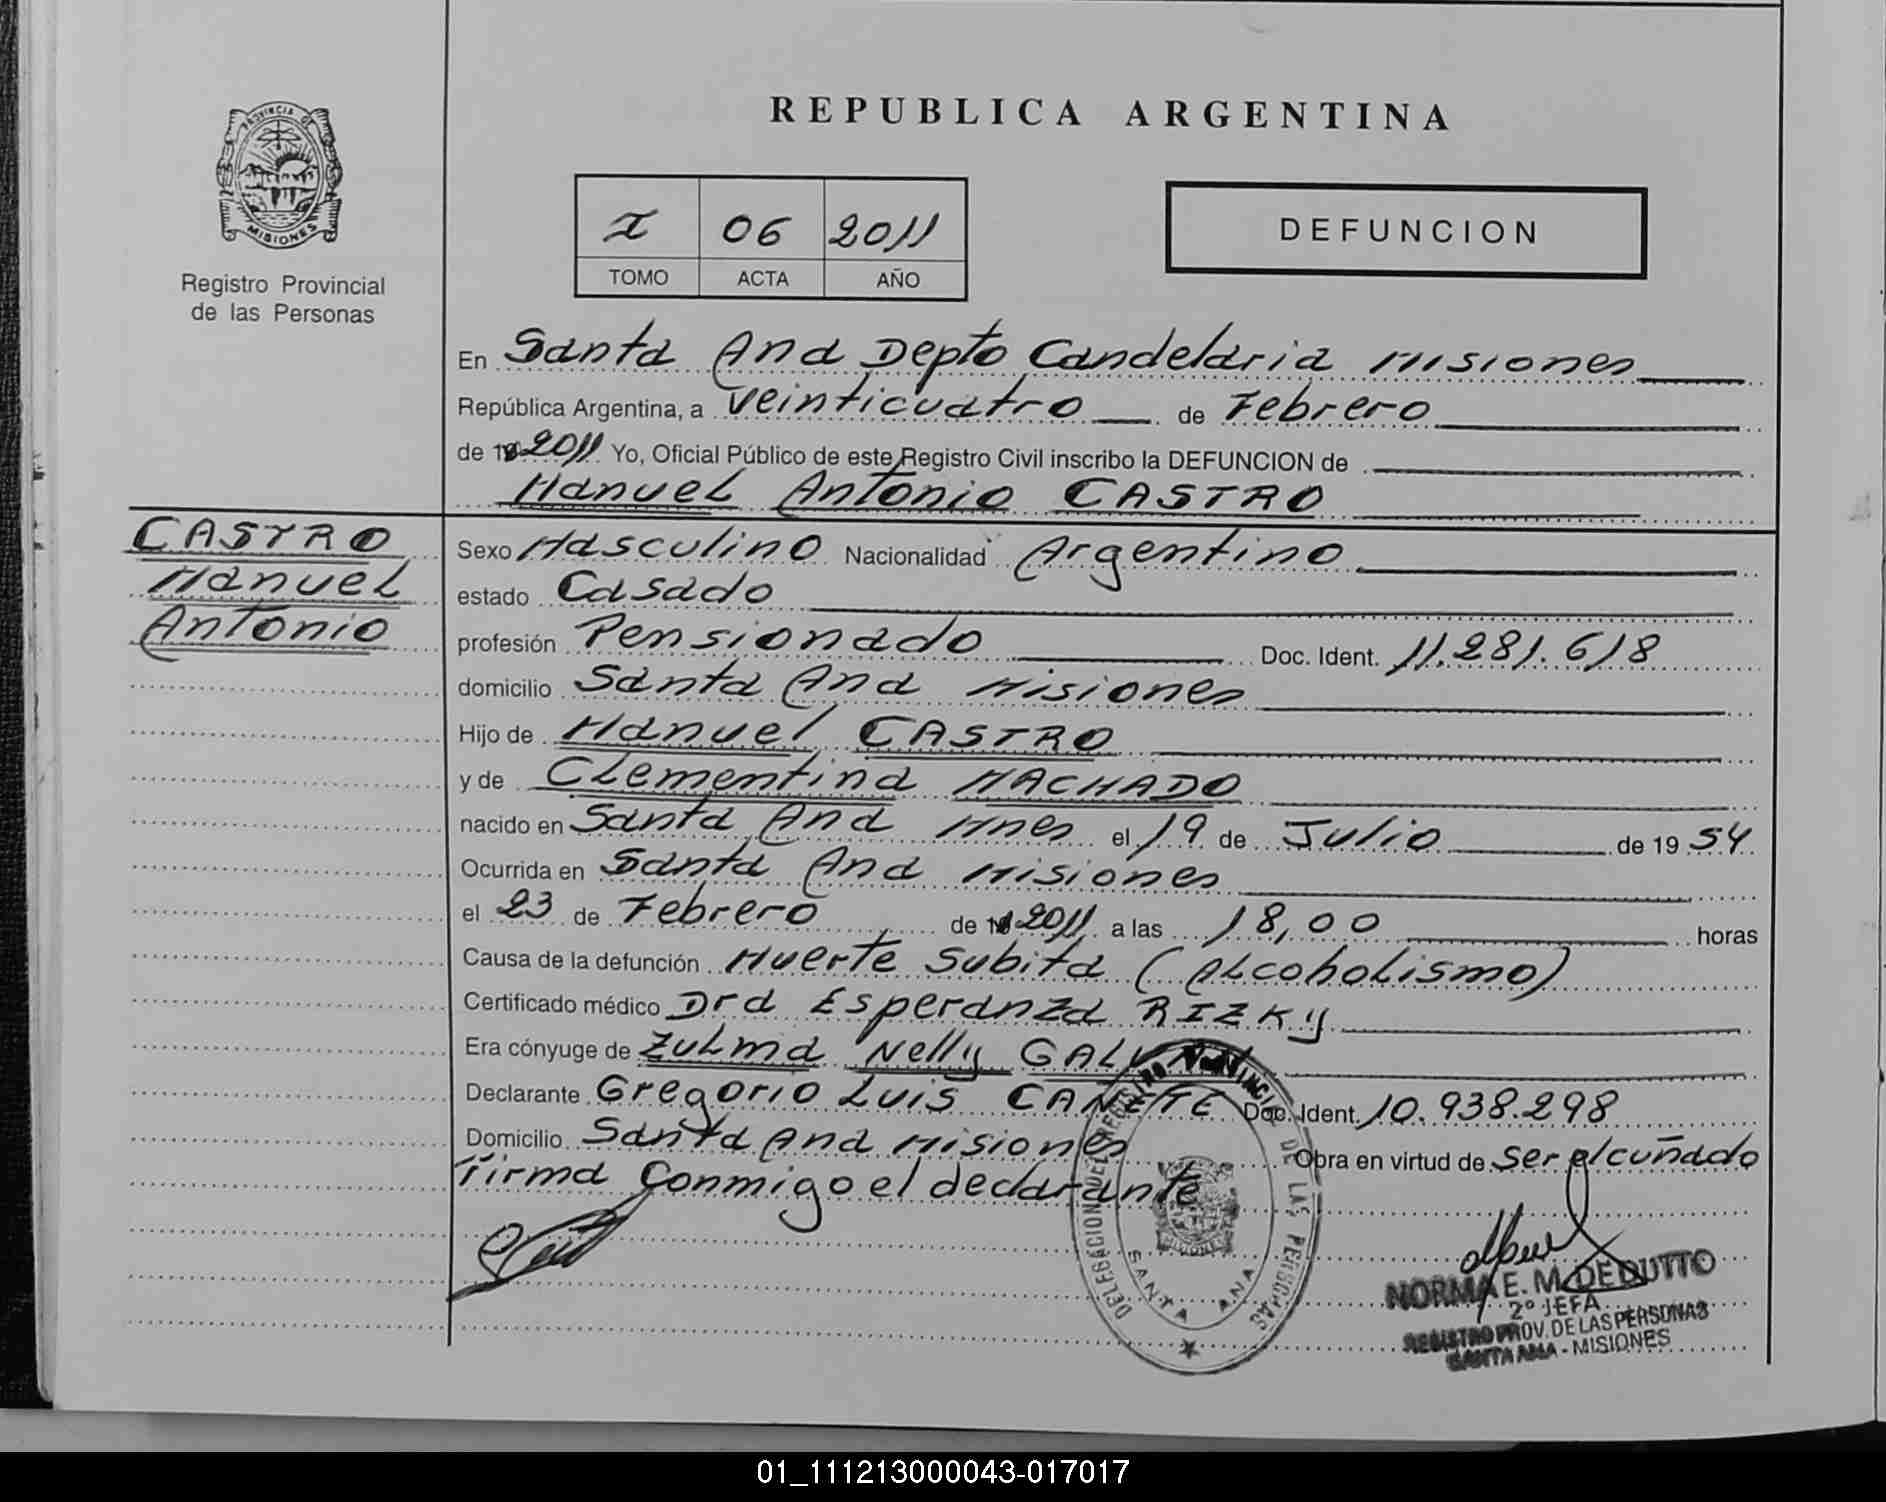 PROVINCIA DE
MISIONES
Registro Provincial
de las Personas
REPUBLICA ARGENTINA
I 06 2011
TOMO ACTA AÑO
DEFUNCION
En Santa Ana Depto Candelaria Misiones
República Argentina, a Veinticuatro de Febrero
de 19 2011 Yo, Oficial Público de este Registro Civil inscribo la DEFUNCION de
Manuel Antonio CASTRO
CASTRO
Manuel
Antonio
Sexo Masculino Nacionalidad Argentino
estado Casado
profesión Pensionado Doc. Ident. 11.281.618
domicilio Santa Ana Misiones
Hijo de Manuel CASTRO
y de Clementina MACHADO
nacido en Santa Ana Mnes el 19 de Julio de 1954
Ocurrida en Santa Ana Misiones
el 23 de Febrero de 19 2011 a las 18,00 horas
Causa de la defunción Muerte Subita (Alcoholismo)
Certificado médico Dra Esperanza RIZKY
Era cónyuge de Zulma Nelly
Declarante Gregorio Luis CAÑETE Doc. Ident. 10.938.298
Domicilio Santa Ana Misiones Obra en virtud de Ser el cuñado
Firma Conmigo el declarante
DELEGACION DEL REGISTRO PROVINCIAL DE LAS PERSONAS
MISIONES
SANTA ANA
NORMA E. M. DEDUTTO
2º JEFA
REGISTRO PROV. DE LAS PERSONAS
SANTA ANA - MISIONES
01_111213000043-017017